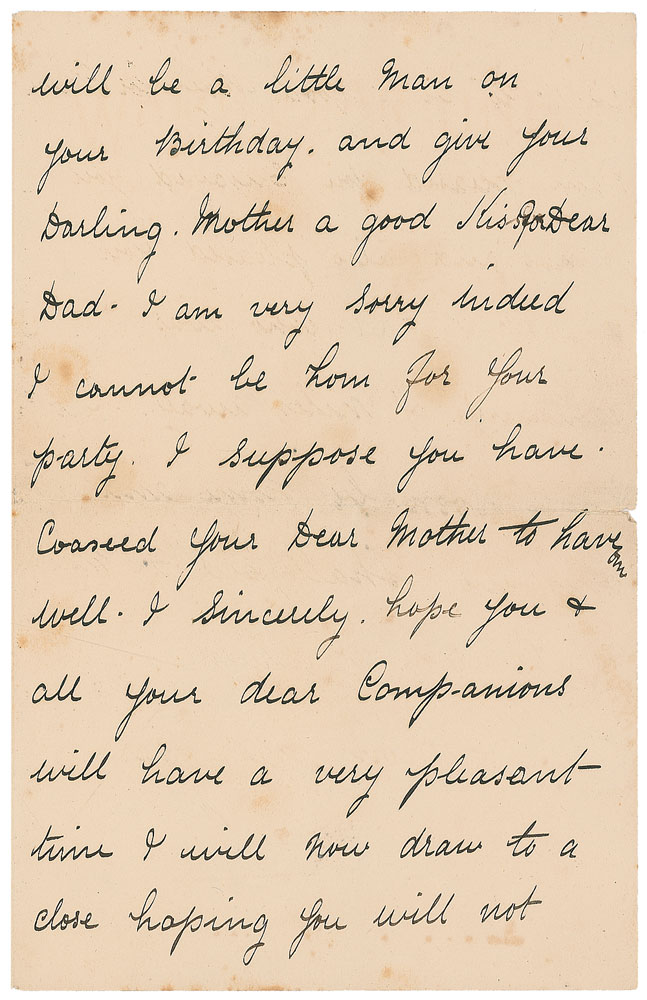 will be a little Man on
your Birthday. and give your
Darling. Mother a good Kiss for Dear
Dad - I am very sorry indeed
I cannot be hom for Your
party. I suppose you have.
Coaseed your Dear Mother to have on
well. I sincerely. hope you &
all your dear Companions
will have a very pleasant
time I will now draw to a
close hoping you will not